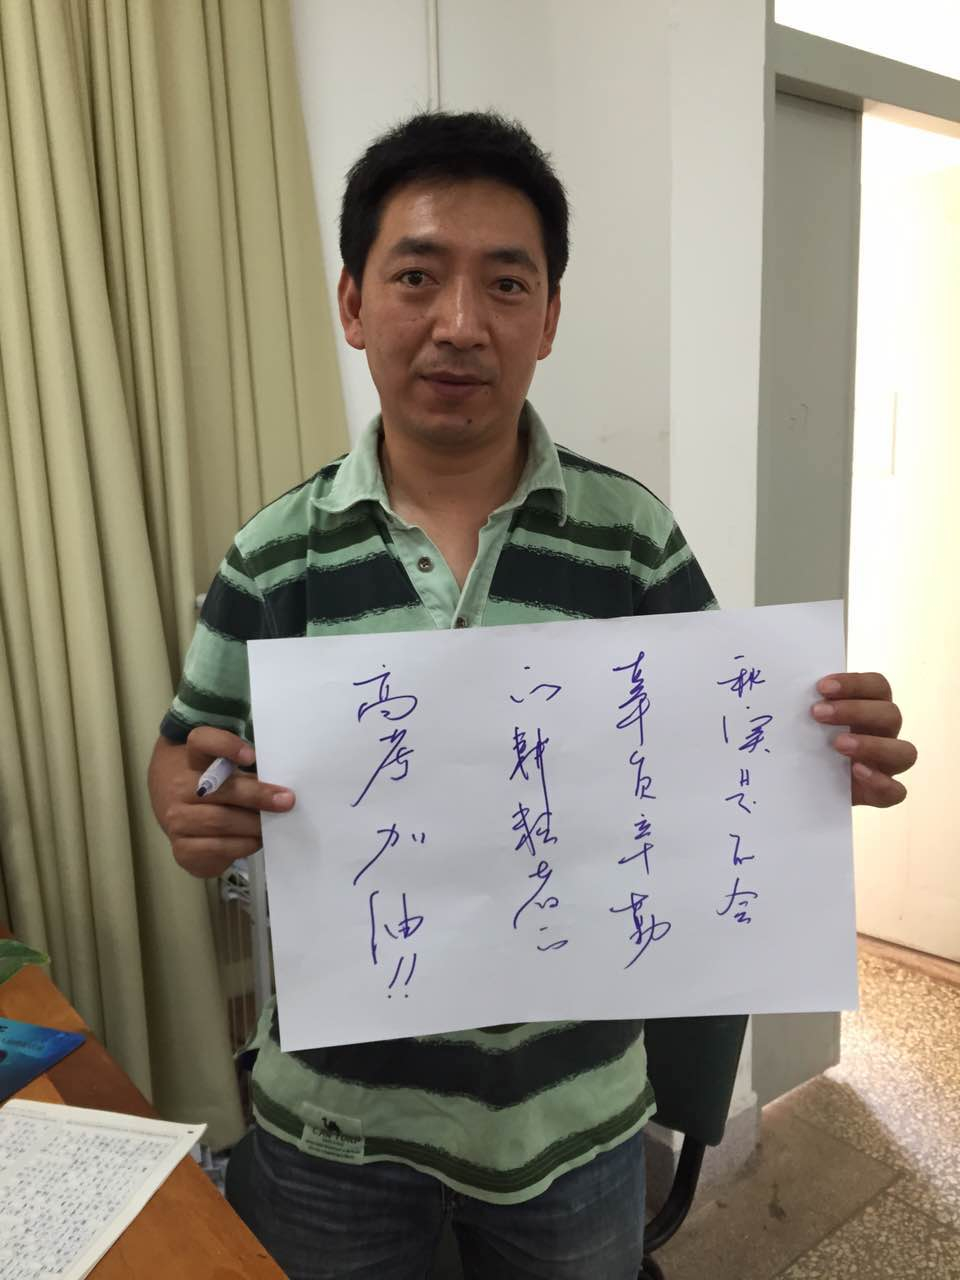 秋实是不会
辜负辛勤
的耕耘者的
高考加油!!